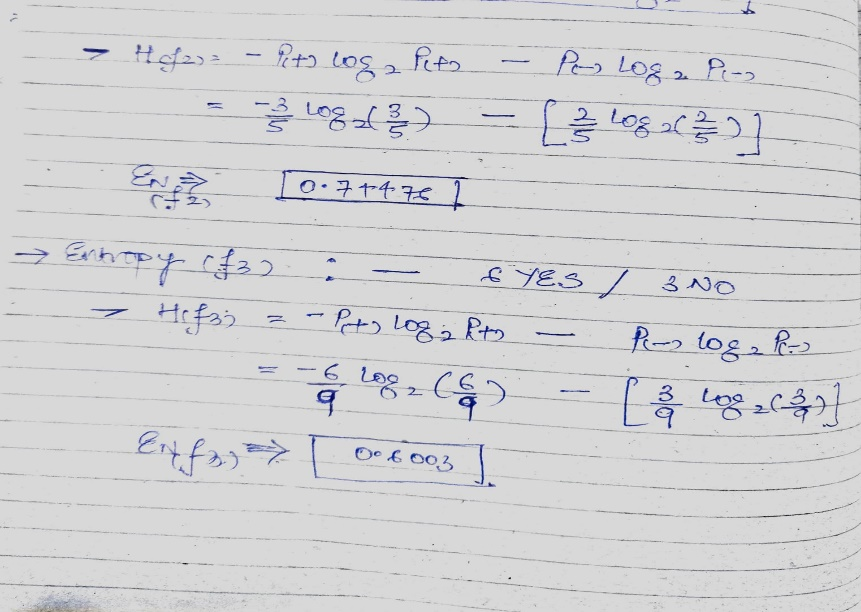 → H(f2) = - P(+) log2 P(+) - P(-) log2 P(-)
= -3/5 log2(3/5) - [2/5 log2(2/5)]
EN(f2) ⇒ [0.77476]
→ Entropy (f3) : - 6 YES / 3 NO
→ H(f3) = - P(+) log2 P(+) - P(-) log2 P(-)
= -6/9 log2(6/9) - [3/9 log2(3/9)]
EN(f3) ⇒ [0.6003].